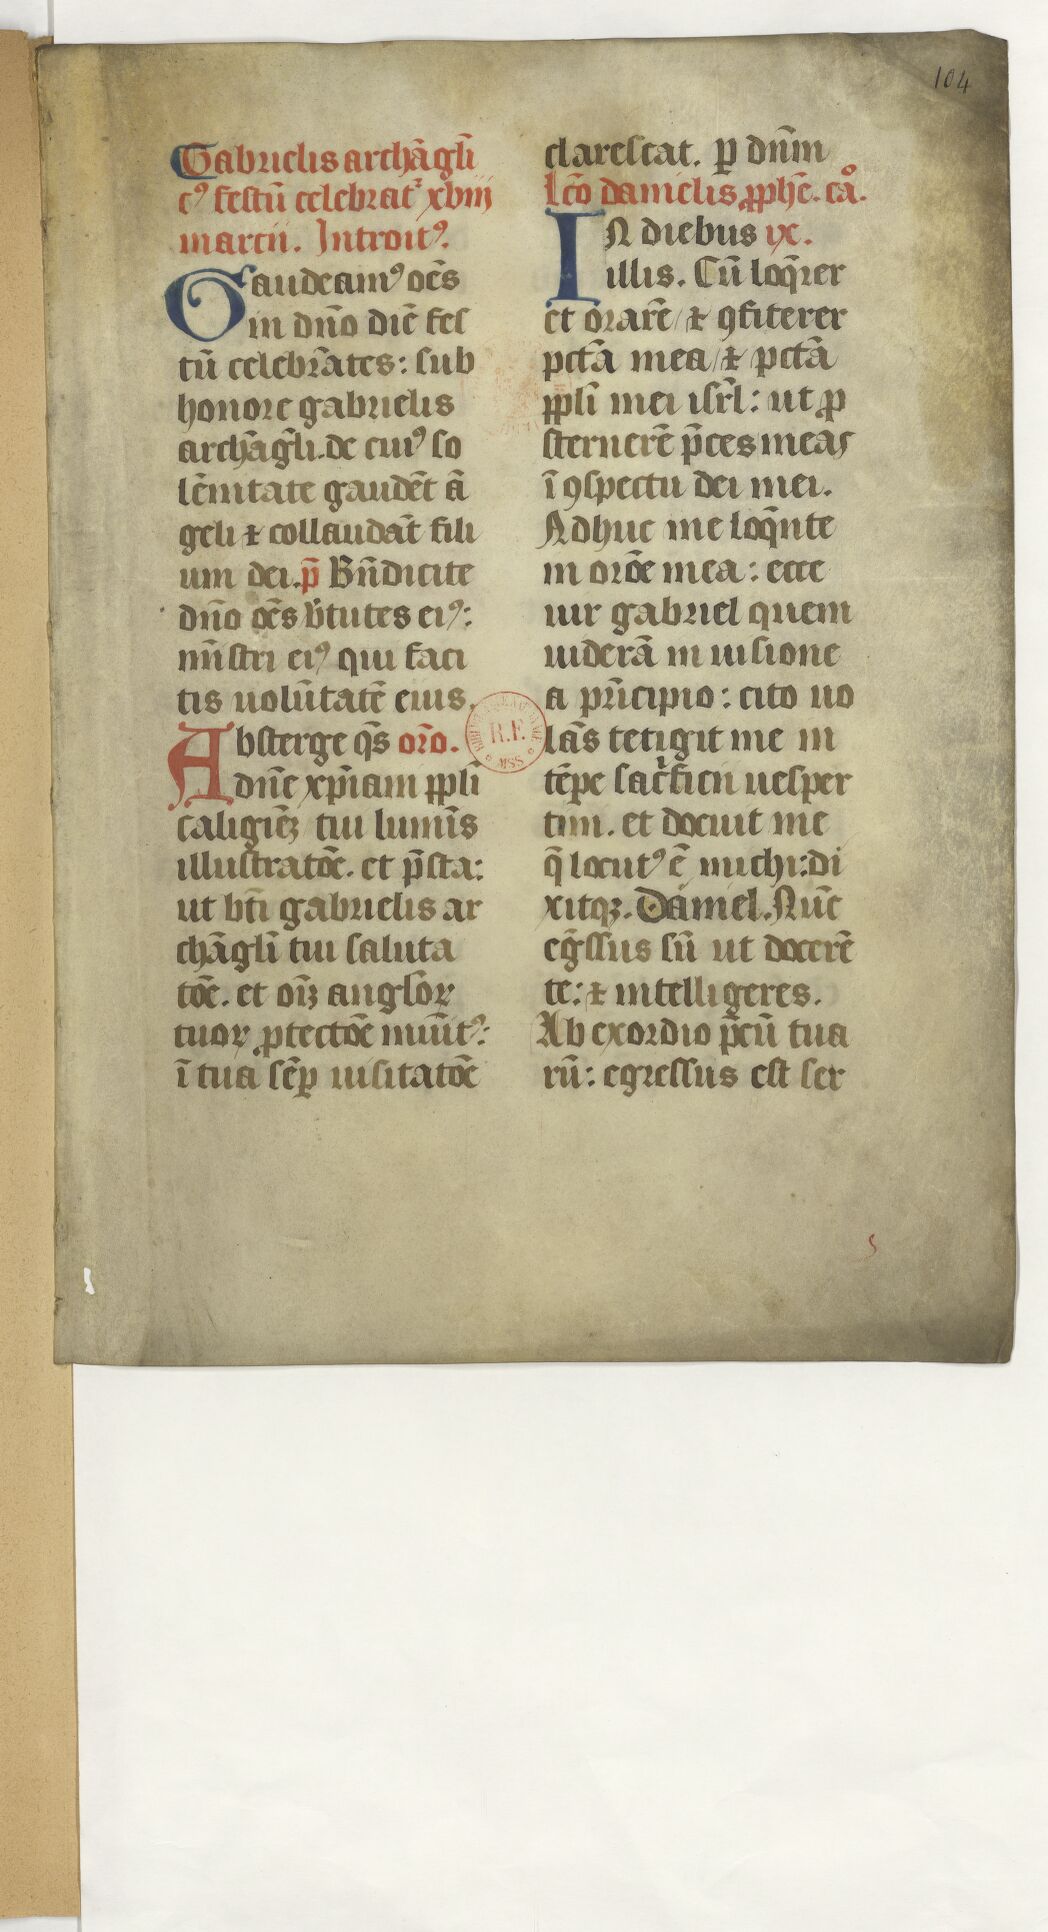 104
Gabrielis archāgl̄i
cꝰ festū celebratᷣ xviij
marcii. Introitꝰ.
Gaudeamꝰ oēs
in dn̄o diē fes
tū celebrātes: sub
honore gabrielis
archāgl̄i. de cuiꝰ so
lēnitate gaudēt ā
geli ⁊ collaudāt fili
um dei. p̄ Bn̄dicite
dn̄o oēs v̄tutes eiꝰ:
mīstri eiꝰ qui faci
tis uolūtatē eius.
Absterge q̄s or̄o.
dn̄e xp̄iani ppl̄i
caligīeꝫ tui lumīs
illustratōe. et p̄sta:
ut bt̄i gabrielis ar
chāgl̄i tui saluta
tōe. et oīuꝫ anglorꝝ
tuoꝝ ꝓtectōe mūitꝰ:
ī tua sēꝑ uisitatōe
clarescat. ꝑ dn̄m
Lc̄o danielis ꝓph̄e. ca̾.
IN diebus ix.
illis. Cū loq̄rer
et orarē / ⁊ ꝯfiterer
pctā mea / ⁊ pctā
ppl̄i mei isr̄l: ut ꝓ
sternerē p̄ces meas
ī ꝯspectu dei mei.
Adhuc me loq̄nte
in orōe mea: ecce
uir gabriel quem
uiderā in uisione
a prīcipio: cito uo
lās tetigit me in
tēpe sac̄ficii uesper
tini. et docuit me
q̄ locutꝰ ē michi: di
xitqꝫ. Daniel. Nūc
eḡssus sū ut docerē
te: ⁊ intelligeres.
Ab exordio p̄cū tua
rū: egressus est ser
BIBLIOTHEQUE NATIONALE
R.F.
MSS